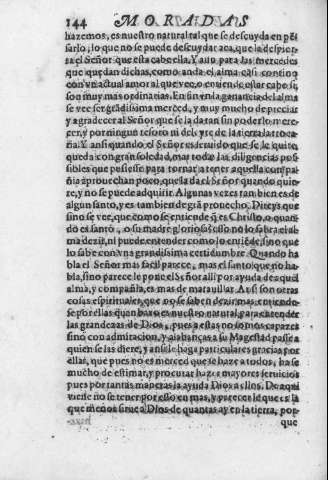 144 MORADAS
hazemos, es nuestro natural tal que se descuyda en pẽ
sarlo, lo que no se puede descuydar aca, que la despier
ta el Señor que esta cabe ella. Y aun para las mercedes
que quedan dichas, como anda el alma casi contino
con vn actual amor al que vee, o entiende estar cabe si,
son muy mas ordinarias. En fin en la ganancia del alma
se vee ser grãdissima merced, y muy mucho de preciar
y agradecer al Señor que se la da tan sin poderlo mere-
cer, y por ningun tesoro ni deleyte de la tierra la troca
ria. Y ansi quando el Señor es seruido que se le quite,
queda con gran soledad, mas todas las diligencias pos
sibles que pusiesse para tornar a tener aquella compa-
ñia aprouechan poco, que la da el Señor quando quie-
re, y no se puede adquirir. Algunas vezes tambien es de
algun santo, y es tambien de grã prouecho. Direys que
sino se vee, que como se entiende q̃ es Christo, o quan-
do es santo, o su madre gloriosissima no lo sabra el al-
ma dezir, ni puede entender como lo entiẽde, sino que
lo sabe con vna grandissima certidumbre. Quando ha
bla el Señor mas facil parece, mas el santo que no ha-
bla, sino parece le pone el Señor alli por ayuda de aquel
alma, y compañia, es mas de marauillar. Ansi son otras
cosas espirituales, que no se saben dezir, mas entiende-
se por ellas quan baxo es nuestro natural, para entender
las grandezas de Dios, pues a estas no somos capazes
sino con admiracion, y alabanças a su Magestad passe a
quien se las diere, y ansi le haga particulares gracias por
ellas, que pues no es merced que se haze a todos, ha se
mucho de estimar, y procurar hazer mayores seruicios
pues por tantas maneras la ayuda Dios a ellos. De aqui
viene no se tener por esso en mas, y parecele que es la
que menos sirue a Dios de quantas ay en la tierra, por-
que